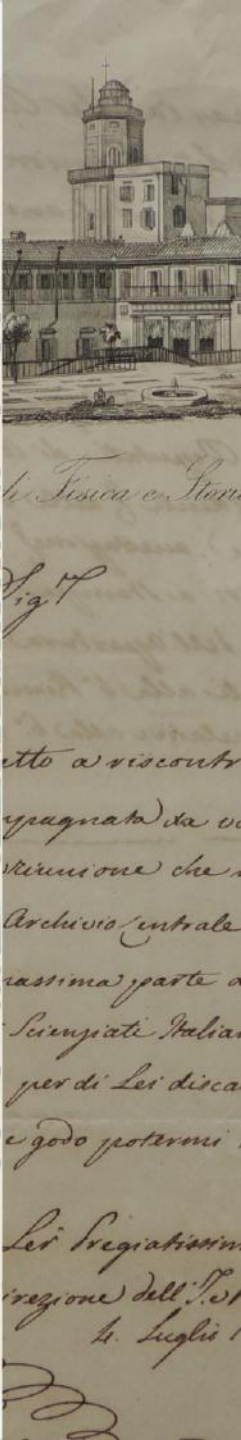 di Fisica e Stori
Sigr
etto a riscontr
mpagnata da va
Riunione che
Archivio Centrale
massima parte
Scienziati Italian
per di Lei disca
e godo potermi
Lei Pregiatissim
irezione dell' I. e R
4. Luglio 1